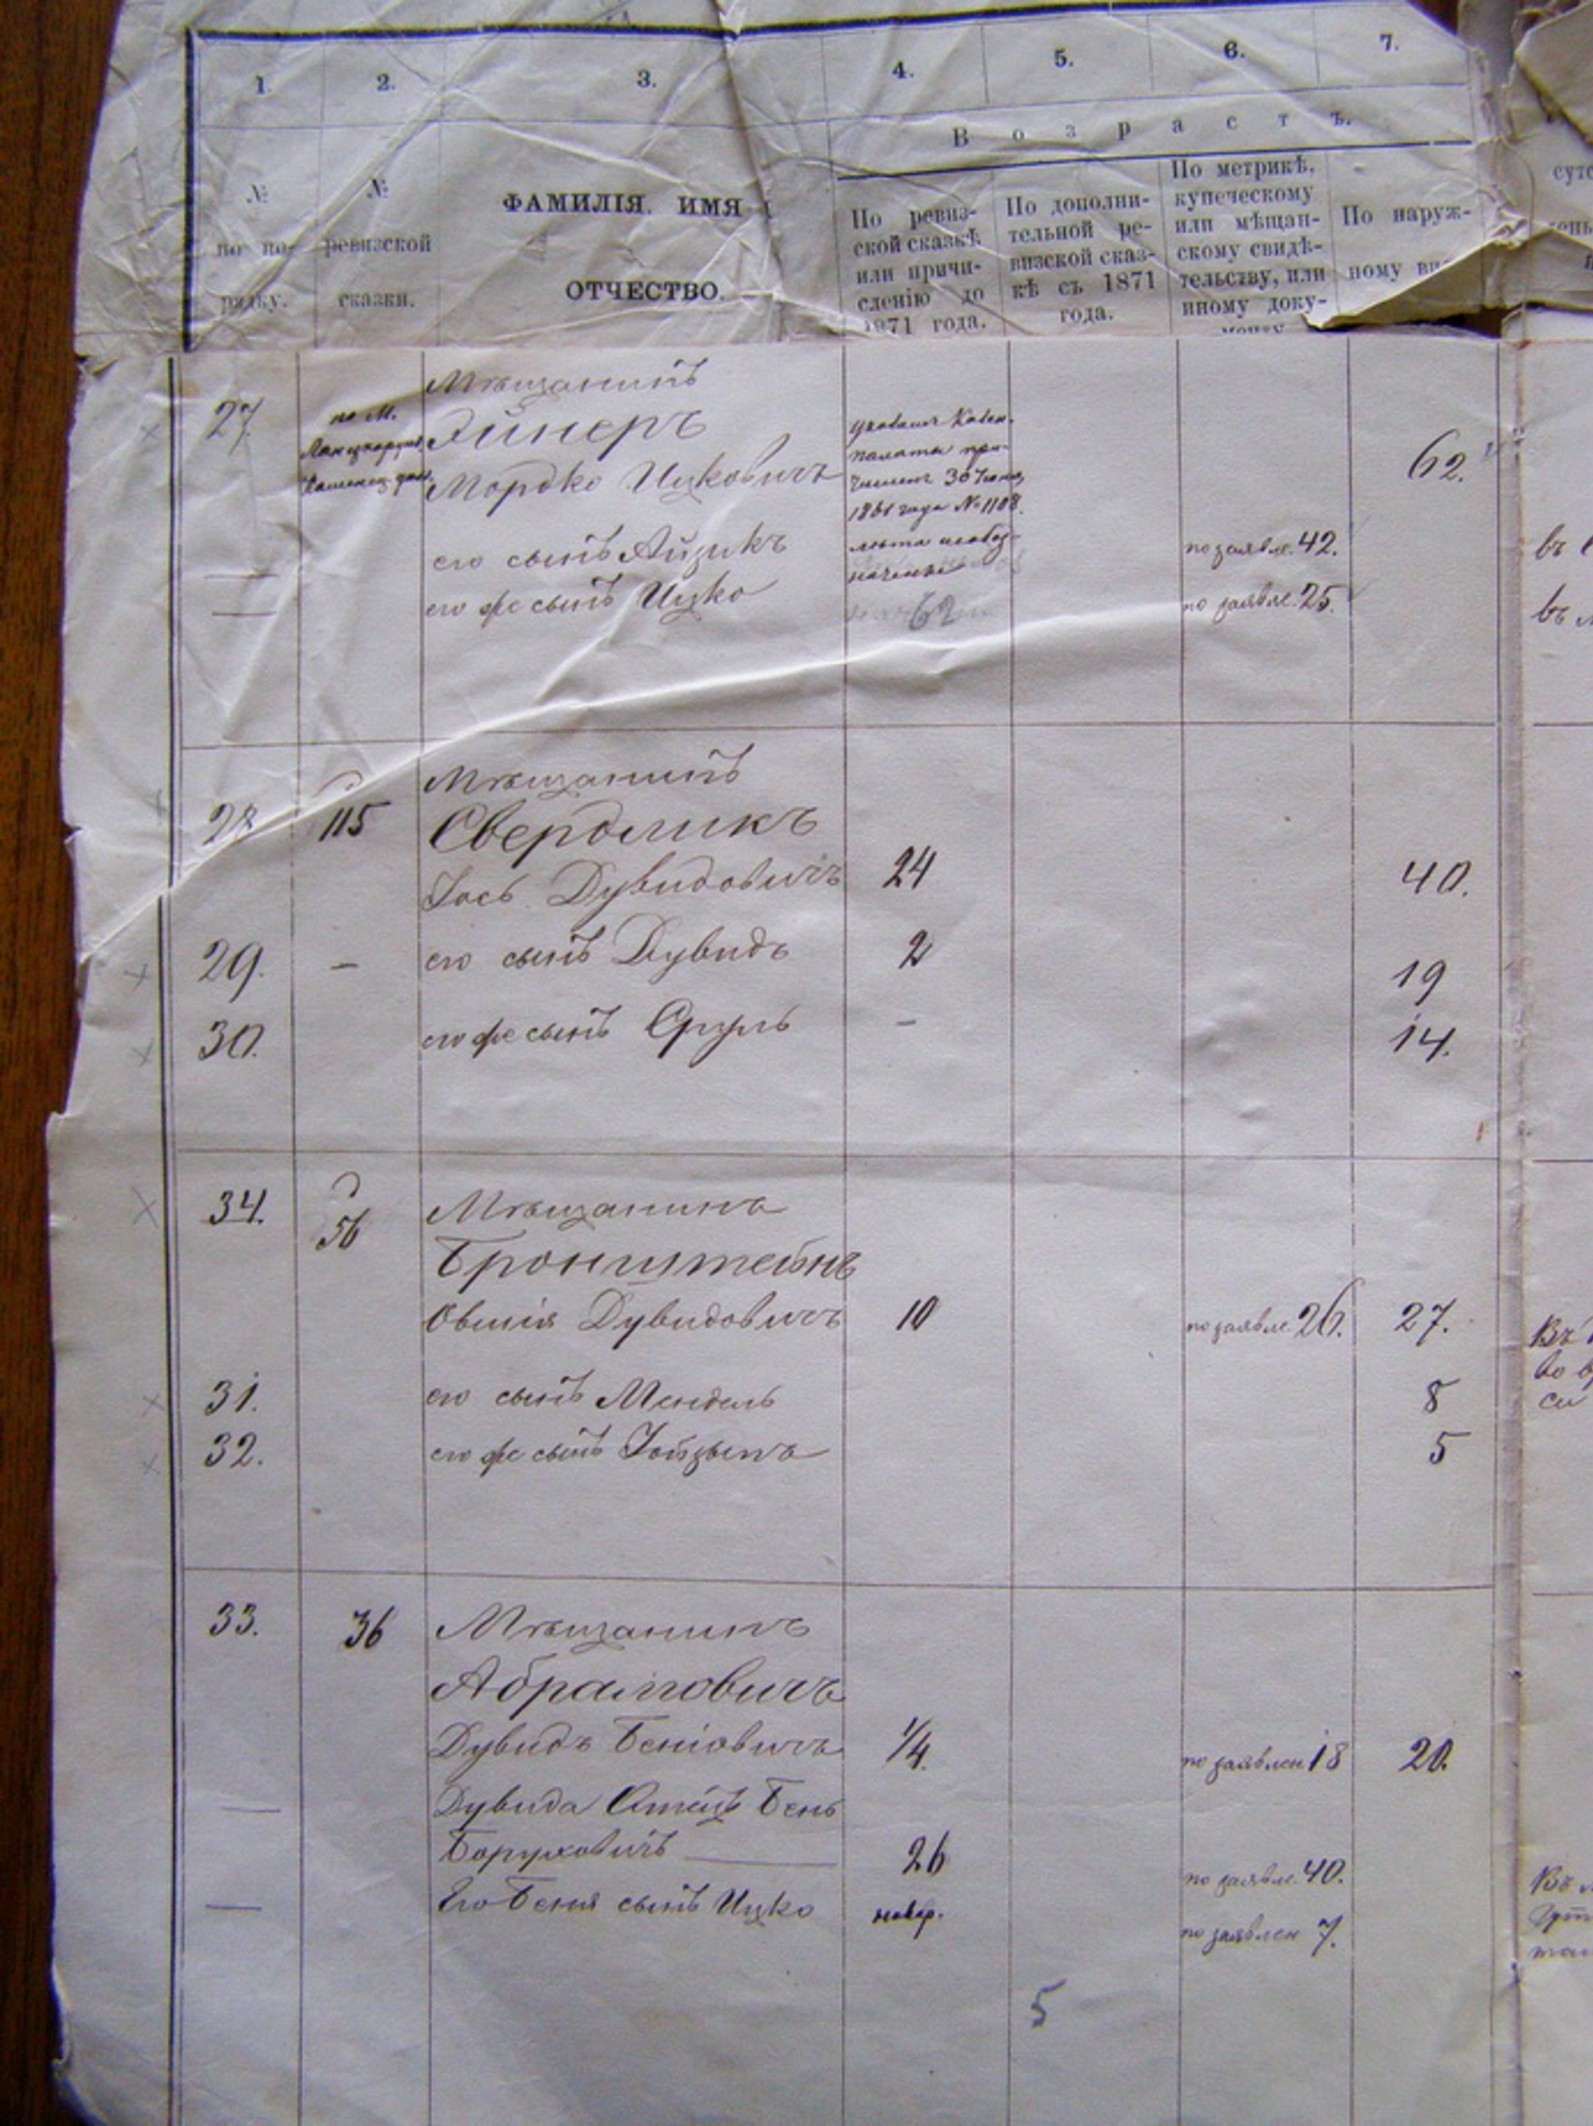 1. 2. 3. 4. 5. 6. 7.
Возрастъ.
№
по по-
рядку.
№
ревизской
сказки.
ФАМИЛІЯ, ИМЯ
ОТЧЕСТВО.
По ревиз-
ской сказкѣ
или причи-
сленію до
1871 года.
По дополни-
тельной ре-
визской сказ-
кѣ съ 1871
года.
По метрикѣ,
купеческому
или мѣщан-
скому свидѣ-
тельству, или
иному доку-
менту
По наруж-
ному ви
Мѣщанинъ
27. по М. Эйнеръ
Мордко Ицковичъ 62.
Палаты при-
численъ 30 Іюня
1861 года № 1108.
лѣта необоз-
начены
его сынъ Айзикъ по заявле. 42.
его же сынъ Ицко 62 по заявле. 25.
Мѣщанинъ
28 115 Свердликъ
Іось Дувидовичъ 24 40.
29. — его сынъ Дувидъ 2 19
30. его же сынъ Сруль — 14.
34. 56 Мѣщанинъ
Бронштейнъ
Овшія Дувидовичъ 10 по заявле 26. 27.
31. его сынъ Мендель 8
32. его же сынъ Іойзыпъ 5
33. 36 Мѣщанинъ
Абрамовичъ
Дувидъ Беніовичъ 1/4. по заявлен 18 20.
— Дувида Отецъ Бень
Боруховичъ — 26 по заявле. 40.
— Его Беня сынъ Ицко невер. по заявлен 7.
5
сут
въ
въ
Въ
во в
си
Въ